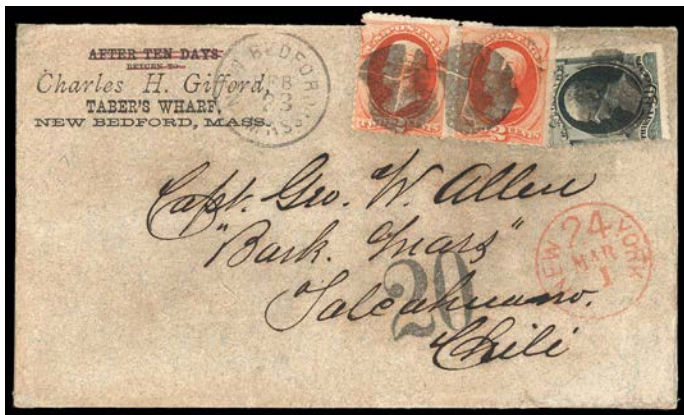 AFTER TEN DAYS
RETURN TO
Charles H. Gifford,
TABER'S WHARF,
NEW BEDFORD, MASS.
NEW BEDFORD
FEB
23
MASS.
2 CENTS
Capt. Geo. W. Allen
"Bark. Mars"
Talcahuano.
Chili
20
NEW YORK
24
MAR
1